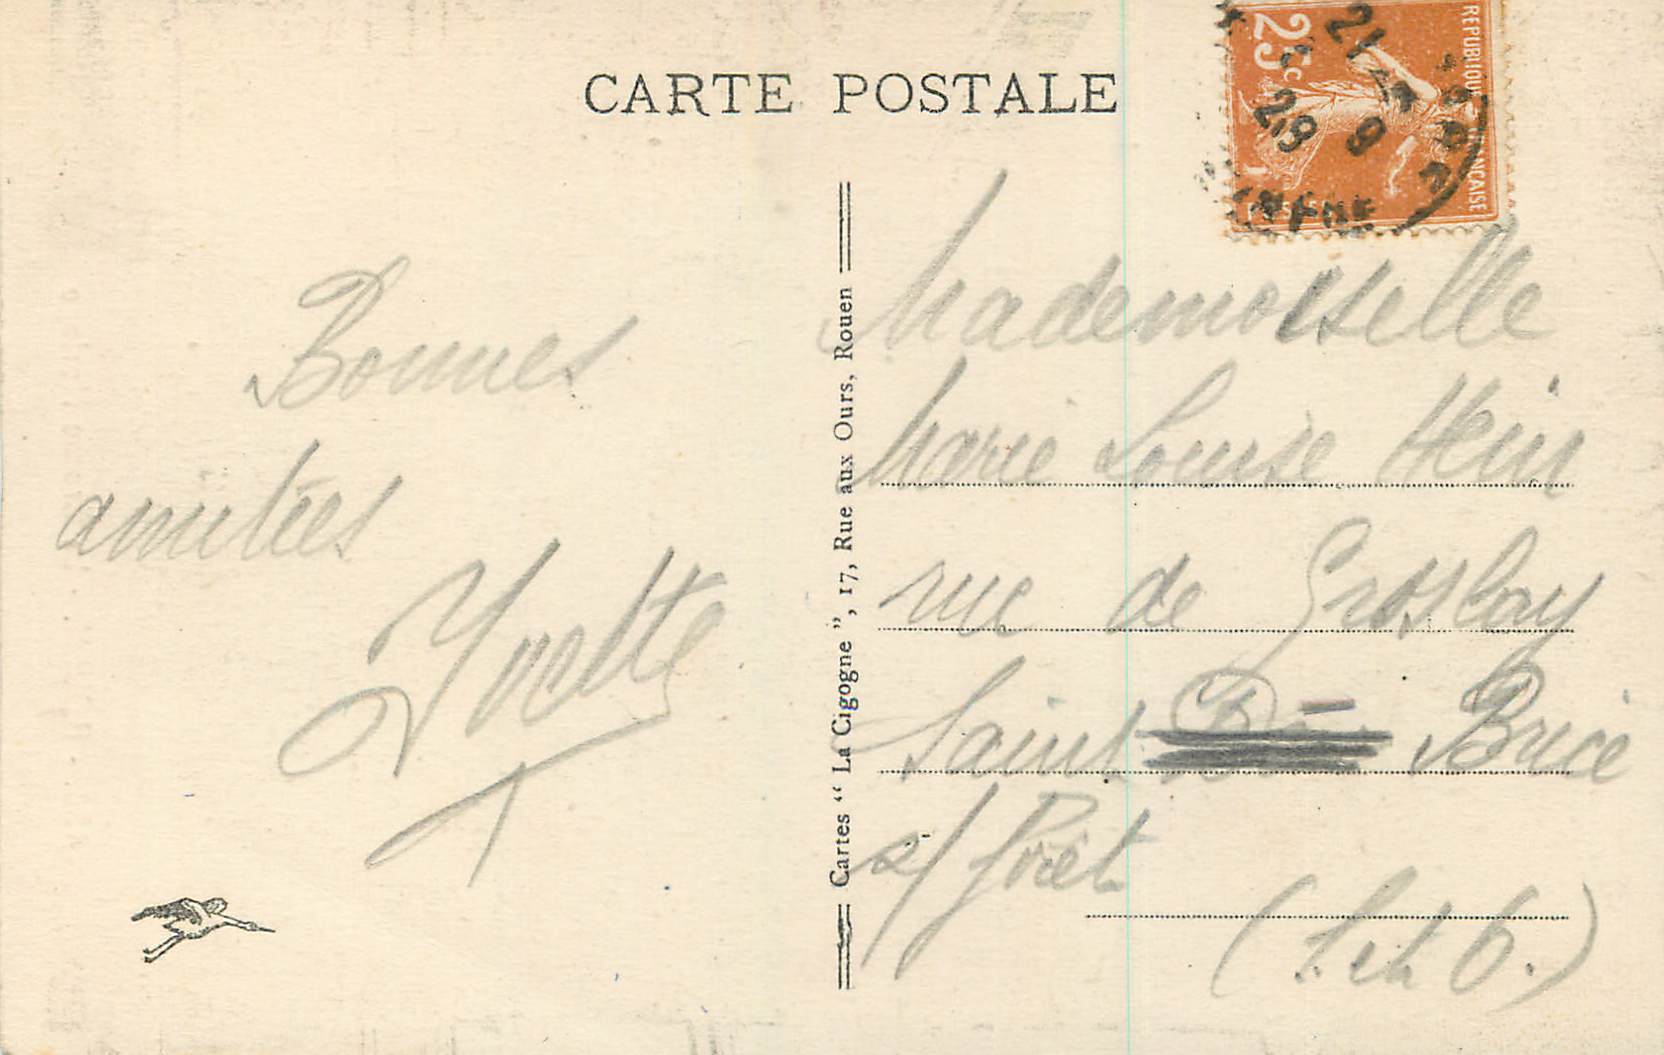 CARTE POSTALE
RÉPUBLIQUE FRANÇAISE
25c
21
29
Bonnes
amitiés
Yvette
Cartes “ La Cigogne ”, 17, Rue aux Ours, Rouen
Mademoiselle
Marie Louise Hein
rue de Groslay
Saint Brice
s/ Forêt
(S. et O.)